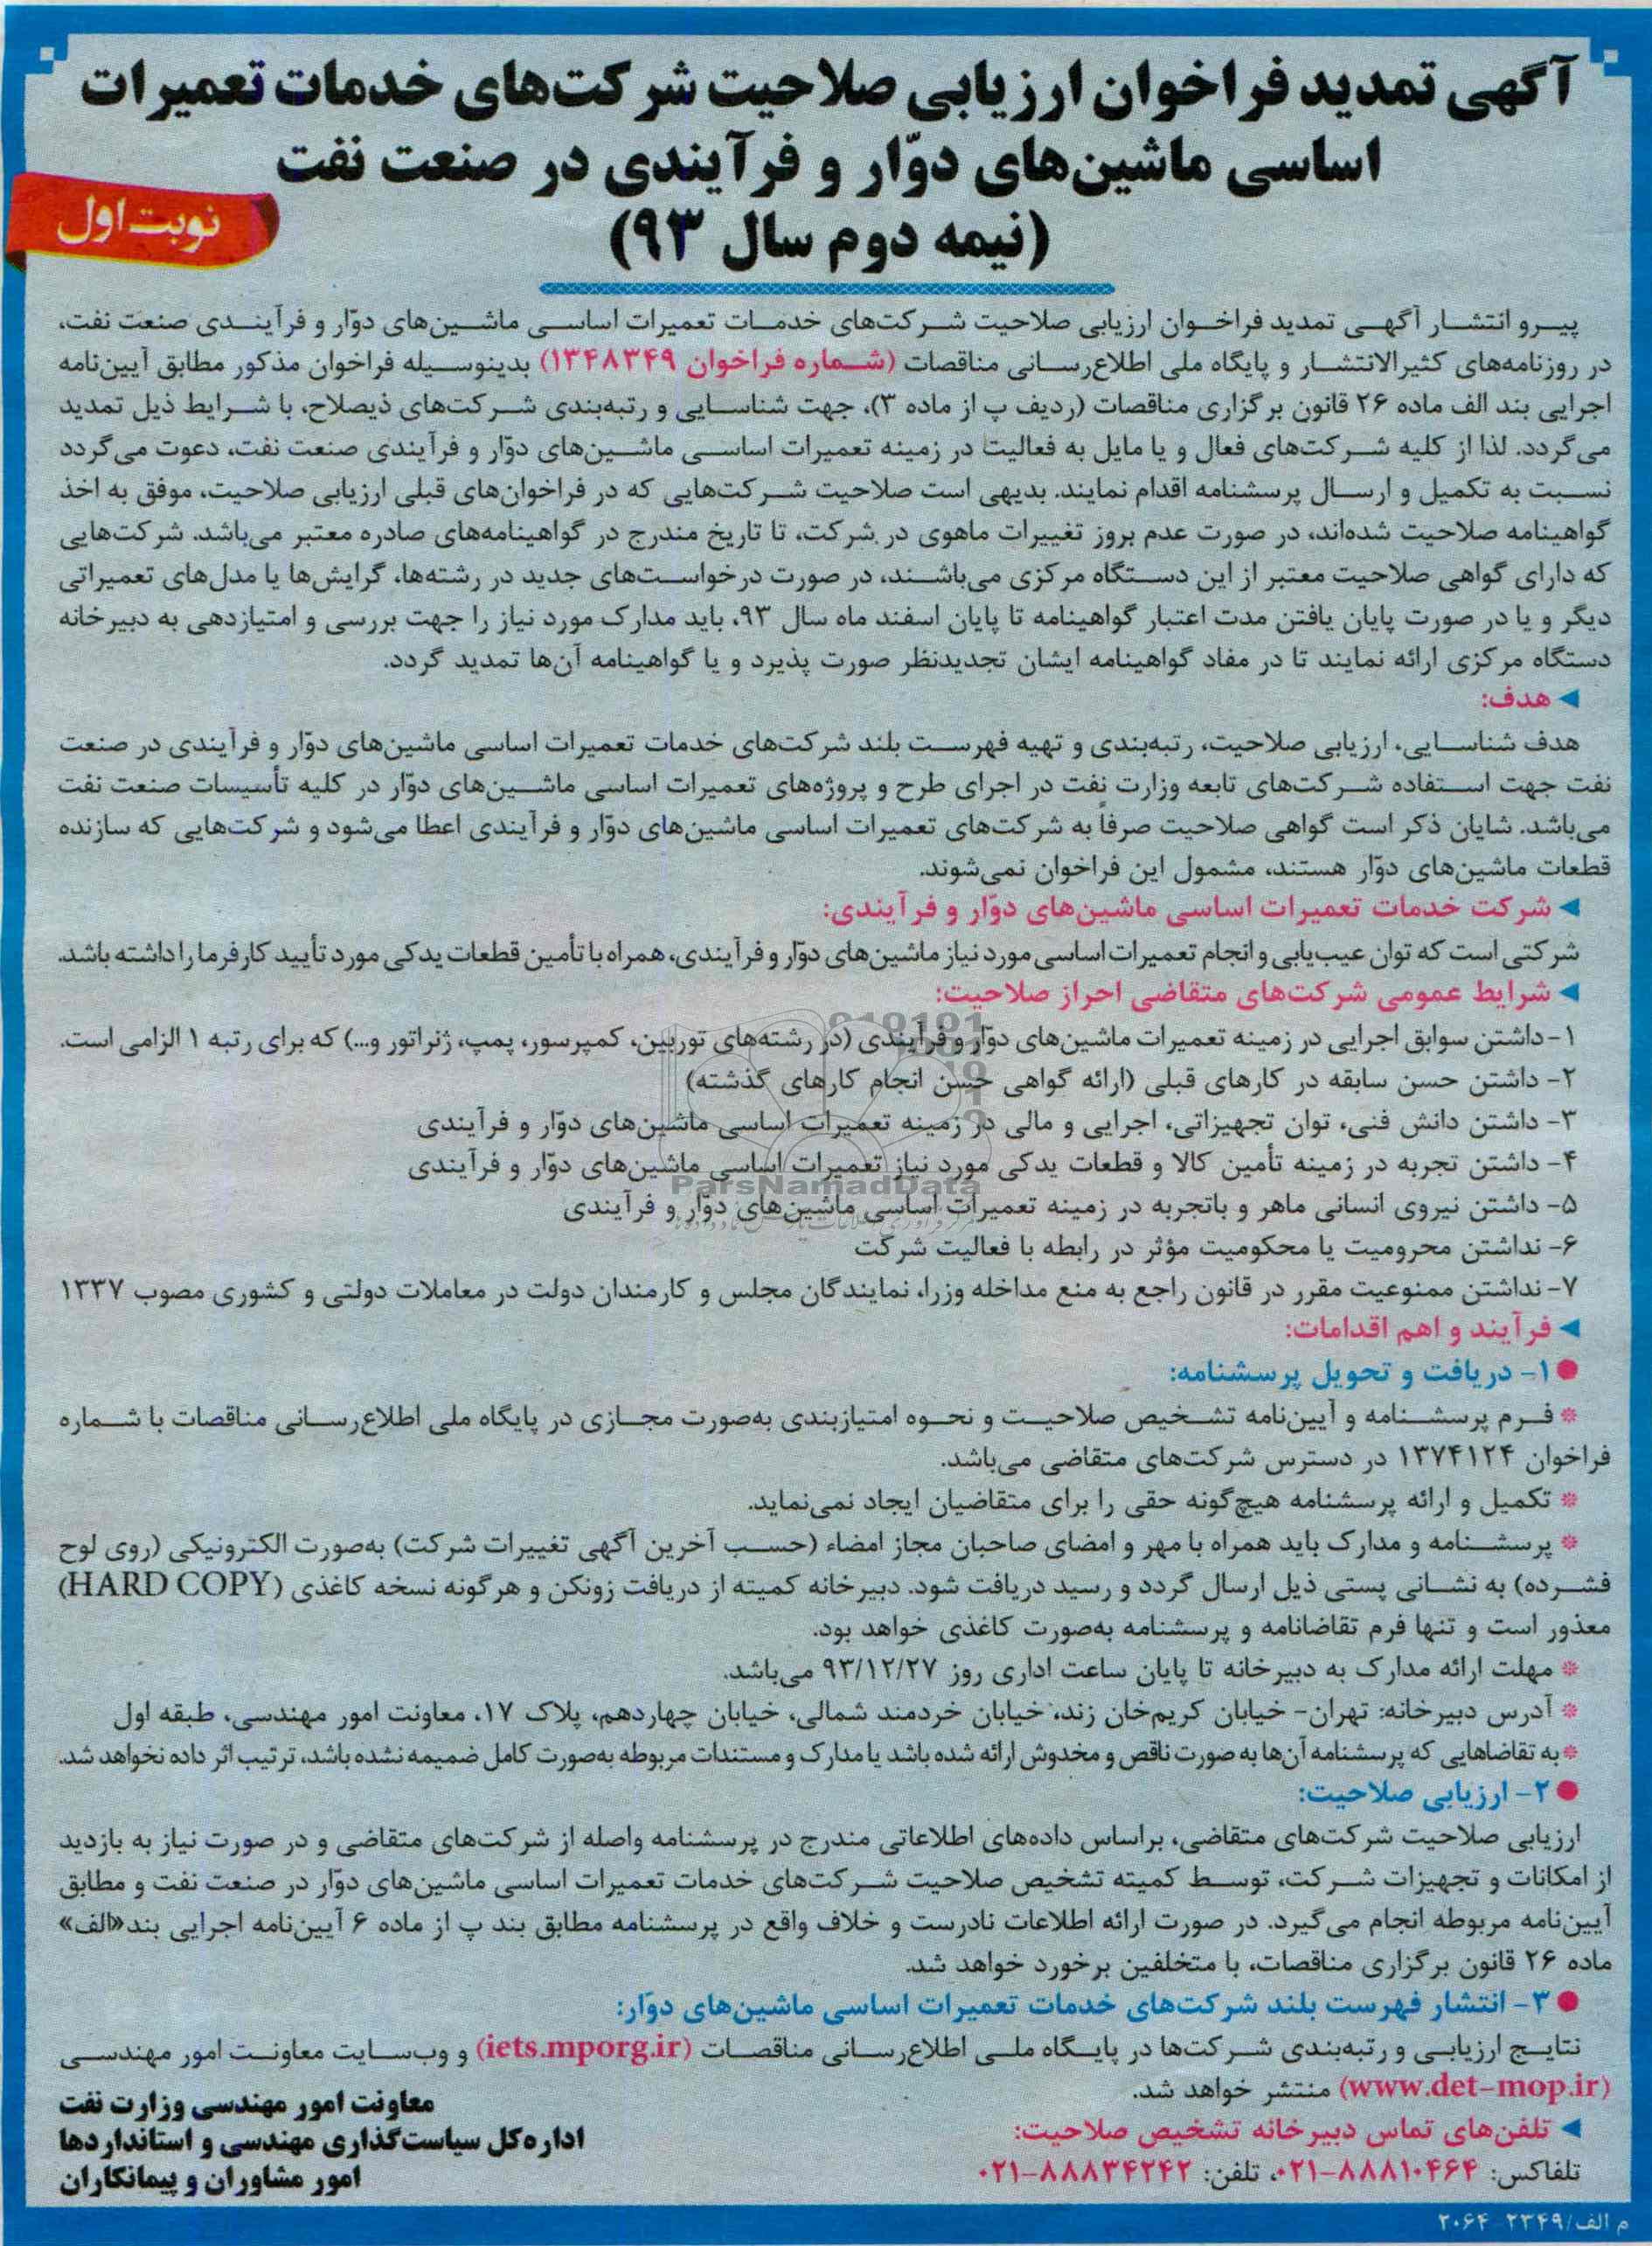 آگهی تمدید فراخوان ارزیابی صلاحیت شرکت‌های خدمات تعمیرات
اساسی ماشین‌های دوّار و فرآیندی در صنعت نفت
(نیمه دوم سال ۹۳)
نوبت اول
پیرو انتشار آگهی تمدید فراخوان ارزیابی صلاحیت شرکت‌های خدمات تعمیرات اساسی ماشین‌های دوّار و فرآیندی صنعت نفت،
در روزنامه‌های کثیرالانتشار و پایگاه ملی اطلاع‌رسانی مناقصات (شماره فراخوان ۱۳۴۸۳۴۹) بدینوسیله فراخوان مذکور مطابق آیین‌نامه
اجرایی بند الف ماده ۲۶ قانون برگزاری مناقصات (ردیف پ از ماده ۳)، جهت شناسایی و رتبه‌بندی شرکت‌های ذیصلاح، با شرایط ذیل تمدید
می‌گردد. لذا از کلیه شرکت‌های فعال و یا مایل به فعالیت در زمینه تعمیرات اساسی ماشین‌های دوّار و فرآیندی صنعت نفت، دعوت می‌گردد
نسبت به تکمیل و ارسال پرسشنامه اقدام نمایند. بدیهی است صلاحیت شرکت‌هایی که در فراخوان‌های قبلی ارزیابی صلاحیت، موفق به اخذ
گواهینامه صلاحیت شده‌اند، در صورت عدم بروز تغییرات ماهوی در شرکت، تا تاریخ مندرج در گواهینامه‌های صادره معتبر می‌باشد. شرکت‌هایی
که دارای گواهی صلاحیت معتبر از این دستگاه مرکزی می‌باشند، در صورت درخواست‌های جدید در رشته‌ها، گرایش‌ها یا مدل‌های تعمیراتی
دیگر و یا در صورت پایان یافتن مدت اعتبار گواهینامه تا پایان اسفند ماه سال ۹۳، باید مدارک مورد نیاز را جهت بررسی و امتیازدهی به دبیرخانه
دستگاه مرکزی ارائه نمایند تا در مفاد گواهینامه ایشان تجدیدنظر صورت پذیرد و یا گواهینامه آن‌ها تمدید گردد.
◄ هدف:
هدف شناسایی، ارزیابی صلاحیت، رتبه‌بندی و تهیه فهرست بلند شرکت‌های خدمات تعمیرات اساسی ماشین‌های دوّار و فرآیندی در صنعت
نفت جهت استفاده شرکت‌های تابعه وزارت نفت در اجرای طرح و پروژه‌های تعمیرات اساسی ماشین‌های دوّار در کلیه تأسیسات صنعت نفت
می‌باشد. شایان ذکر است گواهی صلاحیت صرفاً به شرکت‌های تعمیرات اساسی ماشین‌های دوّار و فرآیندی اعطا می‌شود و شرکت‌هایی که سازنده
قطعات ماشین‌های دوّار هستند، مشمول این فراخوان نمی‌شوند.
◄ شرکت خدمات تعمیرات اساسی ماشین‌های دوّار و فرآیندی:
شرکتی است که توان عیب‌یابی و انجام تعمیرات اساسی مورد نیاز ماشین‌های دوّار و فرآیندی، همراه با تأمین قطعات یدکی مورد تأیید کارفرما را داشته باشد.
◄ شرایط عمومی شرکت‌های متقاضی احراز صلاحیت:
۱- داشتن سوابق اجرایی در زمینه تعمیرات ماشین‌های دوّار و فرآیندی (در رشته‌های توربین، کمپرسور، پمپ، ژنراتور و...) که برای رتبه ۱ الزامی است.
۲- داشتن حسن سابقه در کارهای قبلی (ارائه گواهی حسن انجام کارهای گذشته)
۳- داشتن دانش فنی، توان تجهیزاتی، اجرایی و مالی در زمینه تعمیرات اساسی ماشین‌های دوّار و فرآیندی
۴- داشتن تجربه در زمینه تأمین کالا و قطعات یدکی مورد نیاز تعمیرات اساسی ماشین‌های دوّار و فرآیندی
ParsNamadData
۵- داشتن نیروی انسانی ماهر و باتجربه در زمینه تعمیرات اساسی ماشین‌های دوّار و فرآیندی
۶- نداشتن محرومیت یا محکومیت مؤثر در رابطه با فعالیت شرکت
۷- نداشتن ممنوعیت مقرر در قانون راجع به منع مداخله وزراء نمایندگان مجلس و کارمندان دولت در معاملات دولتی و کشوری مصوب ۱۳۳۷
◄ فرآیند و اهم اقدامات:
● ۱- دریافت و تحویل پرسشنامه:
* فرم پرسشنامه و آیین‌نامه تشخیص صلاحیت و نحوه امتیازبندی به‌صورت مجازی در پایگاه ملی اطلاع‌رسانی مناقصات با شماره
فراخوان ۱۳۷۴۱۲۴ در دسترس شرکت‌های متقاضی می‌باشد.
* تکمیل و ارائه پرسشنامه هیچ‌گونه حقی را برای متقاضیان ایجاد نمی‌نماید.
* پرسشنامه و مدارک باید همراه با مهر و امضای صاحبان مجاز امضاء (حسب آخرین آگهی تغییرات شرکت) به‌صورت الکترونیکی (روی لوح
فشرده) به نشانی پستی ذیل ارسال گردد و رسید دریافت شود. دبیرخانه کمیته از دریافت زونکن و هرگونه نسخه کاغذی (HARD COPY)
معذور است و تنها فرم تقاضانامه و پرسشنامه به‌صورت کاغذی خواهد بود.
* مهلت ارائه مدارک به دبیرخانه تا پایان ساعت اداری روز ۹۳/۱۲/۲۷ می‌باشد.
* آدرس دبیرخانه: تهران- خیابان کریم‌خان زند، خیابان خردمند شمالی، خیابان چهاردهم، پلاک ۱۷، معاونت امور مهندسی، طبقه اول
* به تقاضاهایی که پرسشنامه آن‌ها به صورت ناقص و مخدوش ارائه شده باشد یا مدارک و مستندات مربوطه به‌صورت کامل ضمیمه نشده باشد، ترتیب اثر داده نخواهد شد.
● ۲- ارزیابی صلاحیت:
ارزیابی صلاحیت شرکت‌های متقاضی، براساس داده‌های اطلاعاتی مندرج در پرسشنامه واصله از شرکت‌های متقاضی و در صورت نیاز به بازدید
از امکانات و تجهیزات شرکت، توسط کمیته تشخیص صلاحیت شرکت‌های خدمات تعمیرات اساسی ماشین‌های دوّار در صنعت نفت و مطابق
آیین‌نامه مربوطه انجام می‌گیرد. در صورت ارائه اطلاعات نادرست و خلاف واقع در پرسشنامه مطابق بند پ از ماده ۶ آیین‌نامه اجرایی بند «الف»
ماده ۲۶ قانون برگزاری مناقصات، با متخلفین برخورد خواهد شد.
● ۳- انتشار فهرست بلند شرکت‌های خدمات تعمیرات اساسی ماشین‌های دوّار:
نتایج ارزیابی و رتبه‌بندی شرکت‌ها در پایگاه ملی اطلاع‌رسانی مناقصات (iets.mporg.ir) و وب‌سایت معاونت امور مهندسی
(www.det-mop.ir) منتشر خواهد شد.
◄ تلفن‌های تماس دبیرخانه تشخیص صلاحیت:
تلفاکس: ۸۸۸۱۰۴۶۴-۰۲۱، تلفن: ۸۸۸۳۴۲۴۲-۰۲۱
معاونت امور مهندسی وزارت نفت
اداره کل سیاست‌گذاری مهندسی و استانداردها
امور مشاوران و پیمانکاران
م الف/۲۳۴۹ ۲۰۶۴